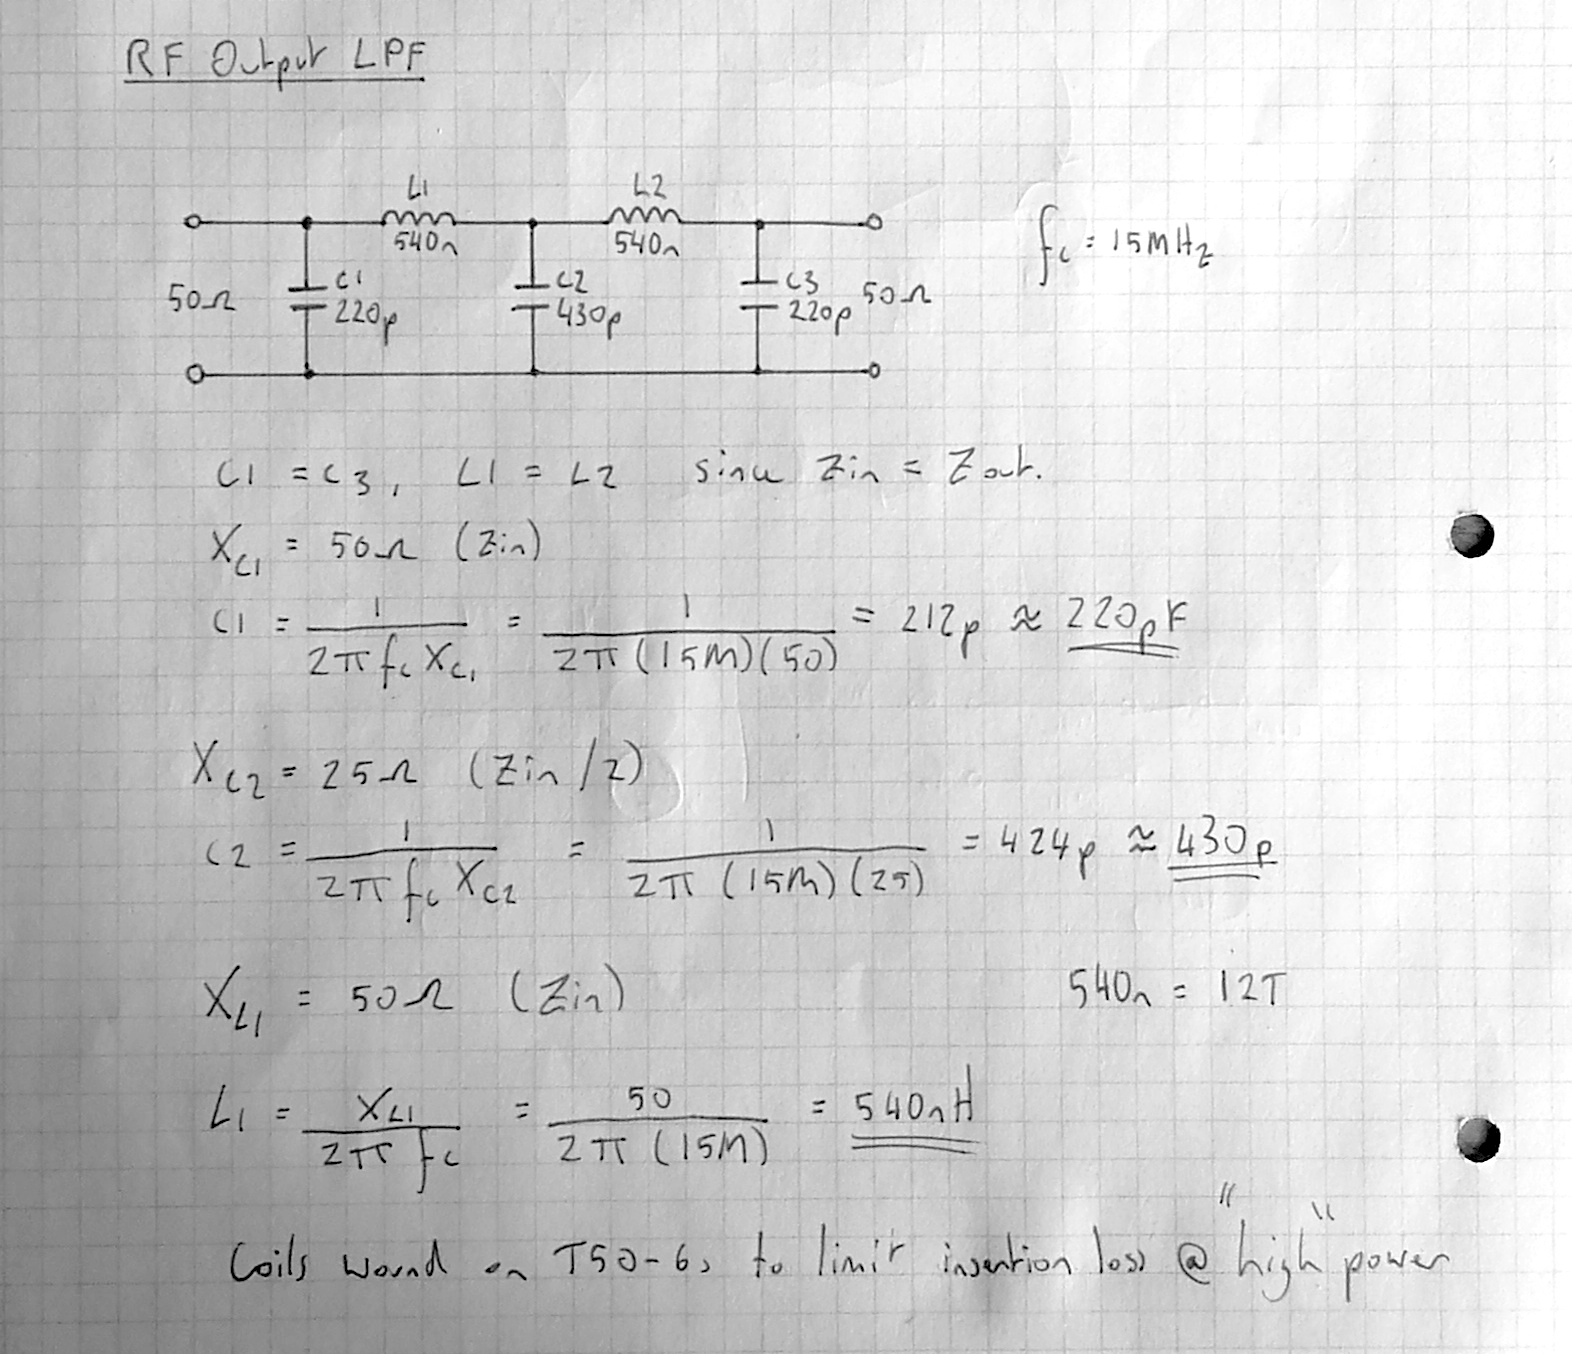 RF Output LPF
L1 L2
540n 540n
fc = 15MHz
50Ω C1 C2 C3 50Ω
220p 430p 220p
C1 = C3, L1 = L2 since Zin = Zout.
XC1 = 50Ω (Zin)
C1 = 1 / 2π fc XC1 = 1 / 2π (15M)(50) = 212p ≈ 220pF
XC2 = 25Ω (Zin/2)
C2 = 1 / 2π fc XC2 = 1 / 2π (15M)(25) = 424p ≈ 430p
XL1 = 50Ω (Zin) 540n = 12T
L1 = XL1 / 2π fc = 50 / 2π (15M) = 540nH
Coils wound on T50-6, to limit insertion loss @ "high" power